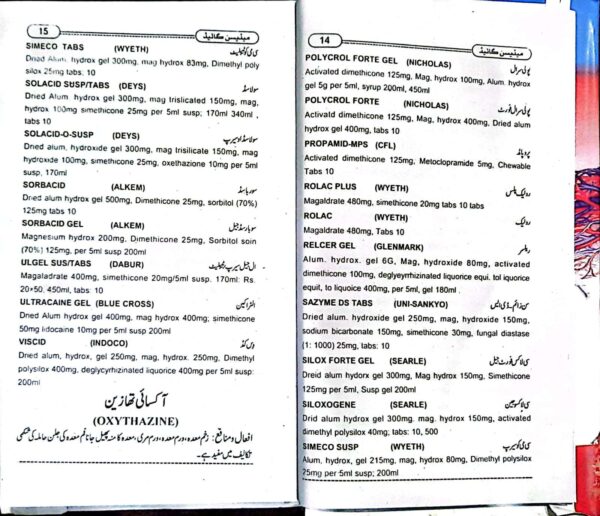 14 میڈیسن گائیڈ
POLYCROL FORTE GEL (NICHOLAS) پولی کرال
Activated dimethicone 125mg, Mag, hydrox 100mg, Alum. hydrox
gel 5g per 5ml, syrup 200ml, 450ml
POLYCROL FORTE (NICHOLAS) پولی کرال فورٹ
Activatd dimethicone 125mg, Mag, hydrox 400mg, Dried alum
hydrox gel 400mg, tabs 10
PROPAMID-MPS (CFL)
Activated dimethicone 125mg, Metoclopramide 5mg, Chewable
Tabs 10
ROLAC PLUS (WYETH) رولیک پلس
Magaldrate 480mg, simethicone 20mg tabs 10 tabs
ROLAC (WYETH) رولیک
Magaldrate 480mg, Tabs 10
RELCER GEL (GLENMARK) ریلسر
Alum. hydrox. gel 6G, Mag, hydroxide 80mg, activated
dimethicone 100mg, deglyeyrrhizinated liquorice equi. tol iquorice
equit, to liquoice 400mg, per 5ml, gel 180ml .
SAZYME DS TABS (UNI-SANKYO) سن زائم۔ڈی ایس
Dried alum. hydroxide gel 250mg, mag, hydroxide 150mg,
sodium bicarbonate 150mg, simethicone 30mg, fungal diastase
(1: 1000) 25mg, tabs: 10
SILOX FORTE GEL (SEARLE) سی لاکس فورٹ جیل
Dreid alum, hydorx gel 300mg, Mag hydrox 150mg, Simethicone
125mg per 5ml, Susp gel 200ml
SILOXOGENE (SEARLE) سی لاکسوجین
Drid alum hydrox gel 300mg. mag. hydrox 150mg, activated
dimethyl polysilox 40mg; tabs: 10, 500
SIMECO SUSP (WYETH) سی می کو سیرپ
Alum, hydrox, gel 215mg, mag, hydrox 80mg, Dimethyl polysilox
25mg per 5ml, susp; 200ml
15 میڈیسن گائیڈ
SIMECO TABS (WYETH) سی می کو ٹیبلیٹ
Dried Alum. hydrox gel 300mg, mag hydrox 83mg, Dimethyl poly
silox 25mg tabs; 10
SOLACID SUSP/TABS (DEYS) سولاسڈ
Dried Alum. hydrox gel 300mg, mag trislicated 150mg, mag,
hydrox 100mg simethicone 25mg per 5ml susp; 170ml 340ml ,
tabs 10
SOLACID-O-SUSP (DEYS) سولاسڈ او سیرپ
Dned alum, hydroxide gel 300mg, mag trisilicate 150mg, mag
hydroxide 100mg, simethicone 25mg, oxethazine 10mg per 5ml
susp, 170ml
SORBACID (ALKEM) سوربا سڈ
Dried alum hydrox gel 500mg, Dimethicone 25mg, sorbitol (70%)
125mg tabs 10
SORBACID GEL (ALKEM) سوربا سڈ جیل
Magnesium hydrox 200mg, Dimethicone 25mg, Sorbitol soin
(70%) 125mg, per 5ml susp 200ml
ULGEL SUS/TABS (DABUR) ال جیل سیرپ ٹیبلیٹ
Magaladrate 400mg, simethicone 20mg/5ml susp. 170ml: Rs.
20×50, 450ml, tabs: 10
ULTRACAINE GEL (BLUE CROSS) الٹرا کین
Dned Alum hydrox gel 400mg, mag hydrox 400mg; simethicone
50mg lidocaine 10mg per 5ml susp 200ml
VISCID (INDOCO) وس کڈ
Dned alum, hydrox, gel 250mg, mag, hydrox. 250mg, Dimethyl
polysilox 400mg, deglycyrhizinated liquorice 400mg per 5ml susp:
200ml
آکسائی تھازین
(OXYTHAZINE)
افعال و منافع: زخم معدہ، ورم معدہ، ورم مری، معدہ کا منہ چھیل جانا فم معدہ کی جلن حاملہ کی شکمی
تکالیف میں مفید ہے۔